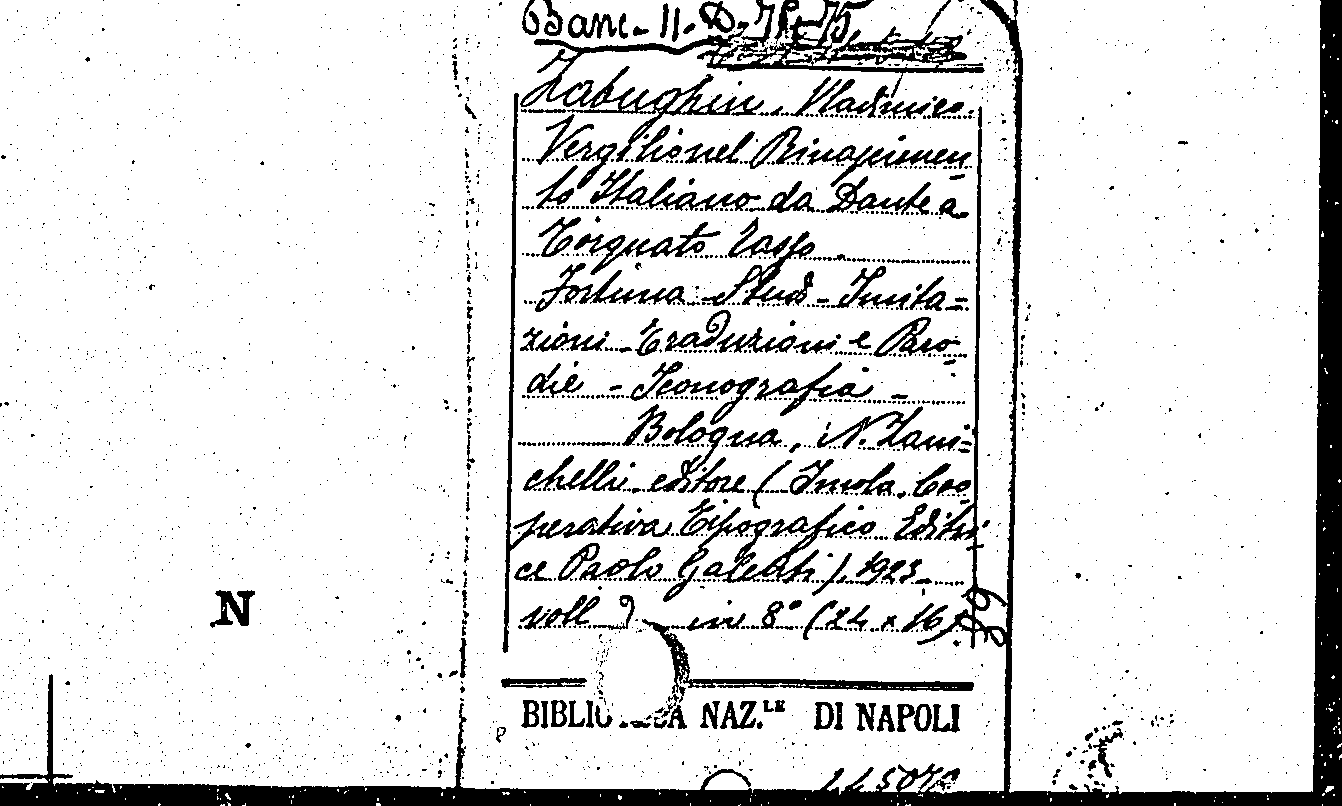 Banc. 11. D. 74-75
Zabughin, Vladimiro.
Vergilio nel Rinascimen
to Italiano da Dante a
Torquato Tasso.
Fortuna - Studi - Imita=
zioni - Traduzioni e Paro
die - Iconografia -
Bologna, N. Zani=
chelli editore (Imola, Coo
perativa Tipografico Editri
ce Paolo Galeati), 1923.
voll 2 in 8° (24 x 16)
N
BIBLIOTECA NAZ.LE DI NAPOLI